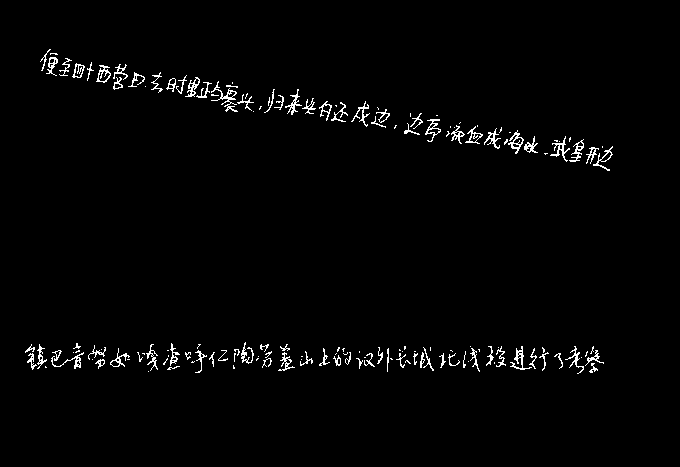 便至四十西营田。去时里正与裹头，归来头白还戍边，边亭流血成海水，武皇开边
镇巴音努如嘎查呼仁陶勒盖山上的汉外长城北线段进行了考察